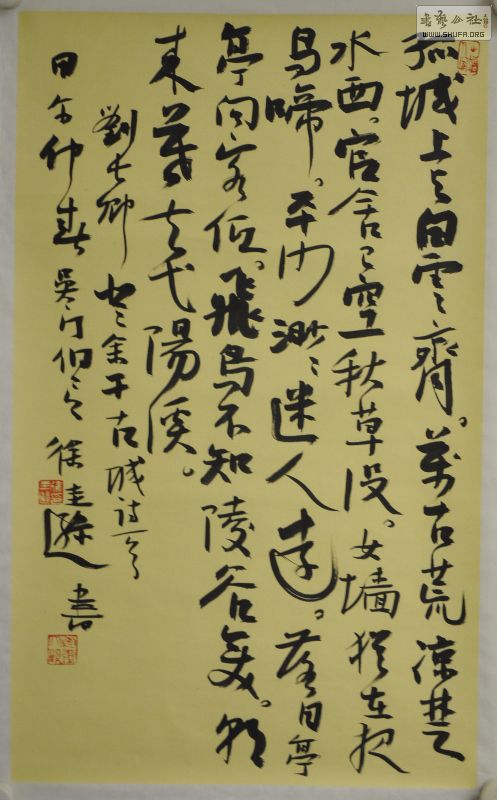 书艺公社
WWW.SHUFA.ORG
孤城上与白雲齊。萬古荒凉楚
水西。官舍已空秋草没。女墙犹在夜
乌啼。平沙渺渺迷人远。落日亭
亭向客低。飛鸟不知陵谷变。朝
来暮去弋陽溪。
劉长卿登余干古城诗一首
甲午仲春吴门徐圭逊書